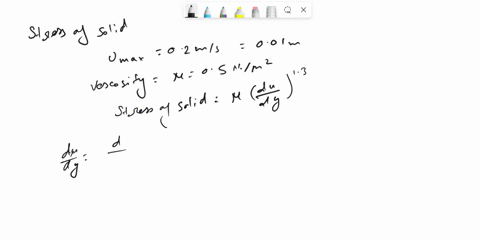 Stress of solid
Umax = 0.2 m/s = 0.01m
Viscosity = μ = 0.5 N/m²
Stress of solid = μ (du/dy)^1.3
(
du/dy = d/